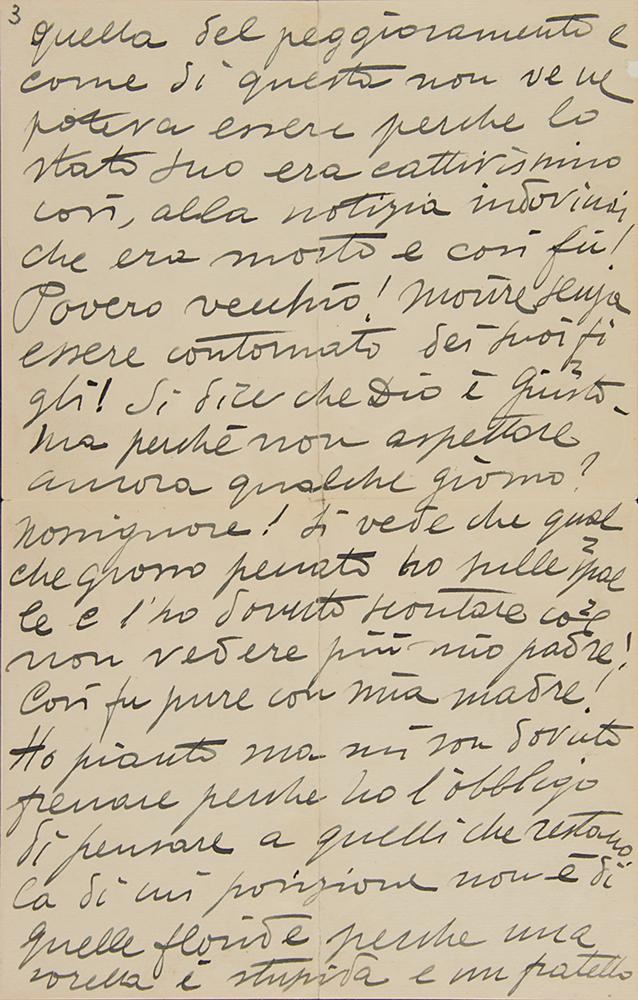 3
quella del peggioramento e
come di questo non ve ne
poteva essere perche lo
stato suo era cattivissimo
così, alla notizia indovinai
che era morto e così fù!
Povero vecchio! Morire senza
essere contornato dei suoi fi
gli! Si dice che Dio è Giusto
ma perchè non aspettare
ancora qualche giorno?
Nossignore! Si vede che qual
che grosso peccato ho sulle spal
le e l'ho dovuto scontare col
non vedere più mio padre!
Così fu pure con mia madre!
Ho pianto ma mi son dovuto
frenare perche ho l'obbligo
di pensare a quelli che restano
la di cui posizione non è di
quelle floride perche una
sorella è stupida e un fratello